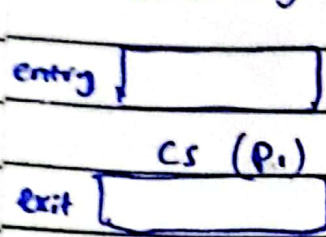 entry
CS (P1)
exit